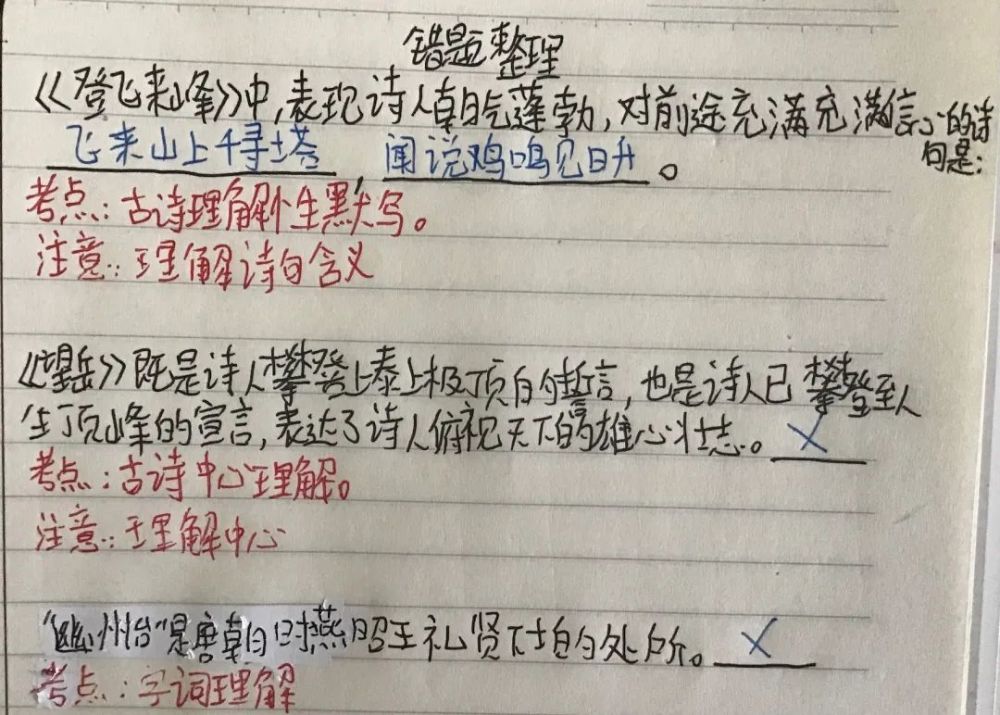 错题整理
《登飞来峰》中,表现诗人朝气蓬勃,对前途充满充满信心的诗句是:
飞来山上千寻塔,闻说鸡鸣见日升。
考点:古诗理解性默写。
注意:理解诗句含义
《望岳》既是诗人攀登上泰上极顶的誓言,也是诗人已攀登至人
生顶峰的宣言,表达了诗人俯视天下的雄心壮志。 X
考点:古诗中心理解。
注意:理解中心
“幽州台”是唐朝时燕昭王礼贤下士的处所。 X
考点:字词理解